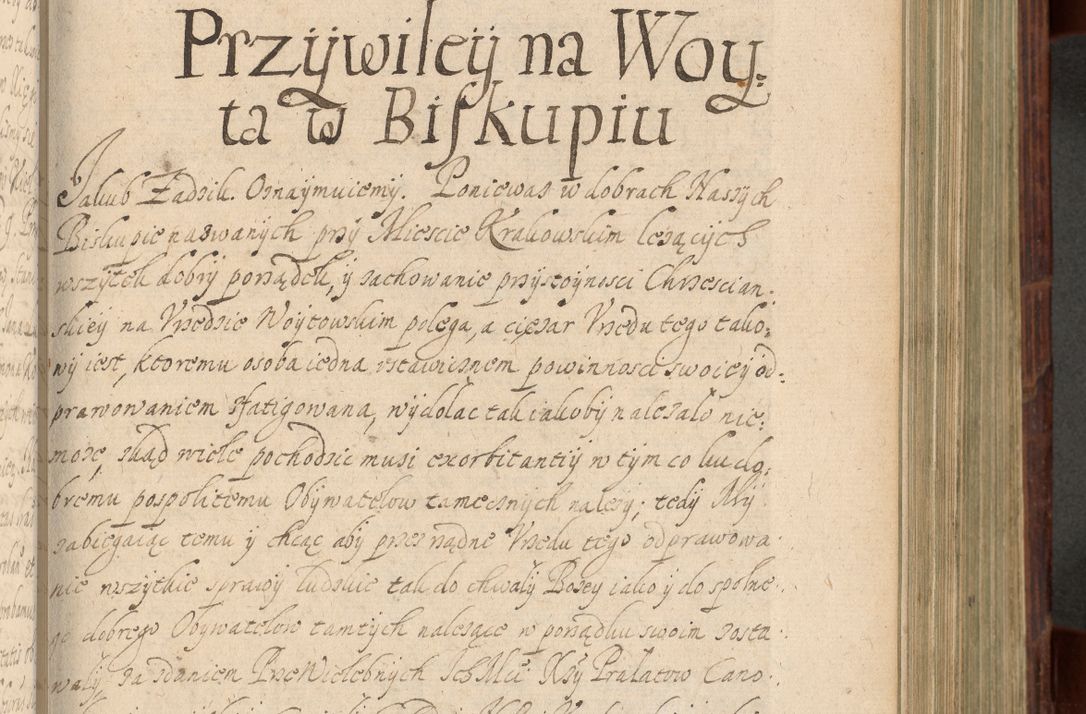 Przÿwileÿ na Woÿ:
ta w Biſkupiu
Jakub Zadzik. Oznaÿmuiemÿ. Poniewaz w dobrach Naszÿch
Biskupie nazwanÿch przÿ Miescie Krakowskim lezącÿch
wszÿtek dobrÿ porządek, ÿ zachowanie przÿstoÿnosci Chrzescian:
skieÿ na Vrzedzie Woÿtowskim polega, a cięzar Vrzedu tego tako:
wÿ iest, ktoremu osoba iedna vstawicznem powinnosci swoieÿ od:
prawowaniem sfatigowana, wÿdolac tak iakobÿ nalezalo nie:
moze, skąd wiele pochodzic musi exorbitantiÿ w tÿm co ku do:
bremu pospolitemu Obÿwatelow tamecznÿch nalezÿ; tedÿ Mÿ
zabiegaiąc temu ÿ chcąc abÿ przez rządne Vrzedu tego odprawowa:
nie wszÿtkie sprawÿ ludzkie tak do chwalÿ Bozeÿ iako ÿ do spolne:
go dobrego Obÿwatelow tamtÿch nalezące w porządku swoim zosta:
walÿ, za zdaniem PrzeWielebnÿch Ich Mci Xżÿ Pralatow Cano: